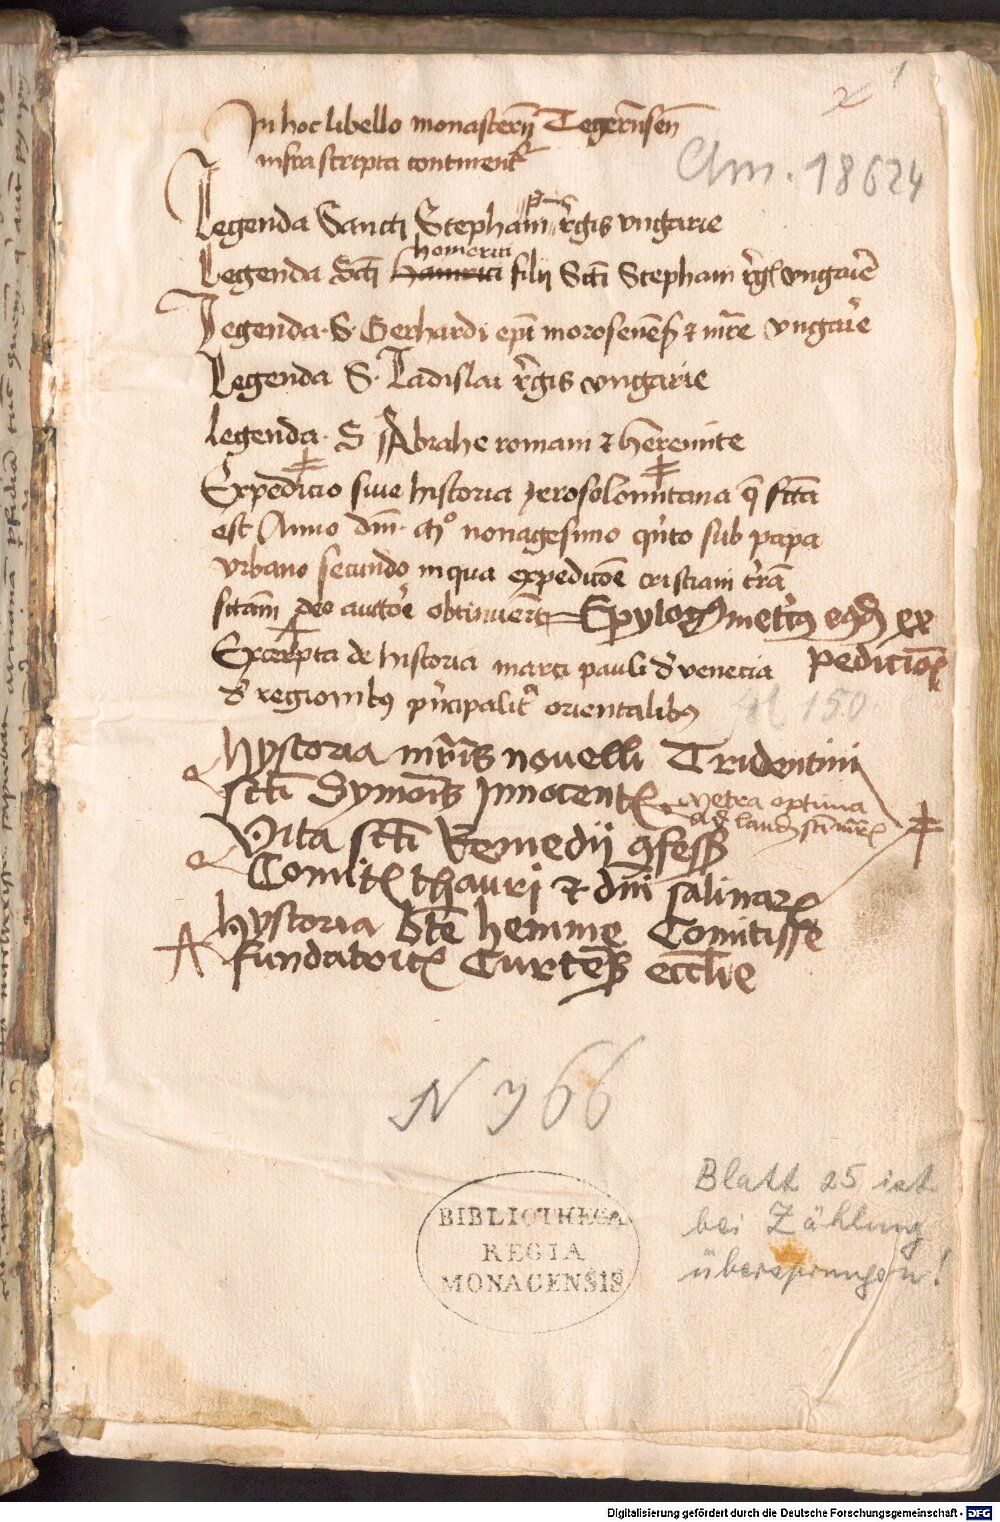 1
In hoc libello monasterij Tegernsen̄
infrascripta continent᷑
Clm. 18624
Legenda Sancti Stephani pͥ regis vngarie
homerici
Legenda Scti Hamrici filij Scti Stephani rgͥs vngarie
Legenda S. Gerhardi epi moroseneñ ⁊ mr̄e vngarie
Legenda S. Ladislai regis vngarie
Legenda S Abrahe romani ⁊ heremite
Expedicio siue historia Jerosolomitana q̄ scta
est Anno dm̄. Mº nonagesimo qͥnto sub papa
vrbano secundo in qua expedicōe cristiani tr̄ā
sctam deo auctor̄e obtinuer̄t Epylogꝰ metricꝰ eqd ex
pedicioīs
Excerpta de historia marci pauli d' venecia
d' regionibꝰ pͥncipalitͬ orientalibꝰ
fl 150
Hystoria mr̄is nouelli Tridentini
scti Symoīs Innocentꝭ metra optima
ad laudē scti mr̄is
Vita scti Remedij ꝯfessoris
Comitꝭ thauri ⁊ dni salinarꝝ
A Hystoria bt̄e hemme Comitisse
fundatricꝭ Curceñ eccl̄ie
N 366
BIBLIOTHECA
REGIA
MONACENSIS
Blatt 25 ist
bei Zählung
übersprungen!
Digitalisierung gefördert durch die Deutsche Forschungsgemeinschaft - DFG